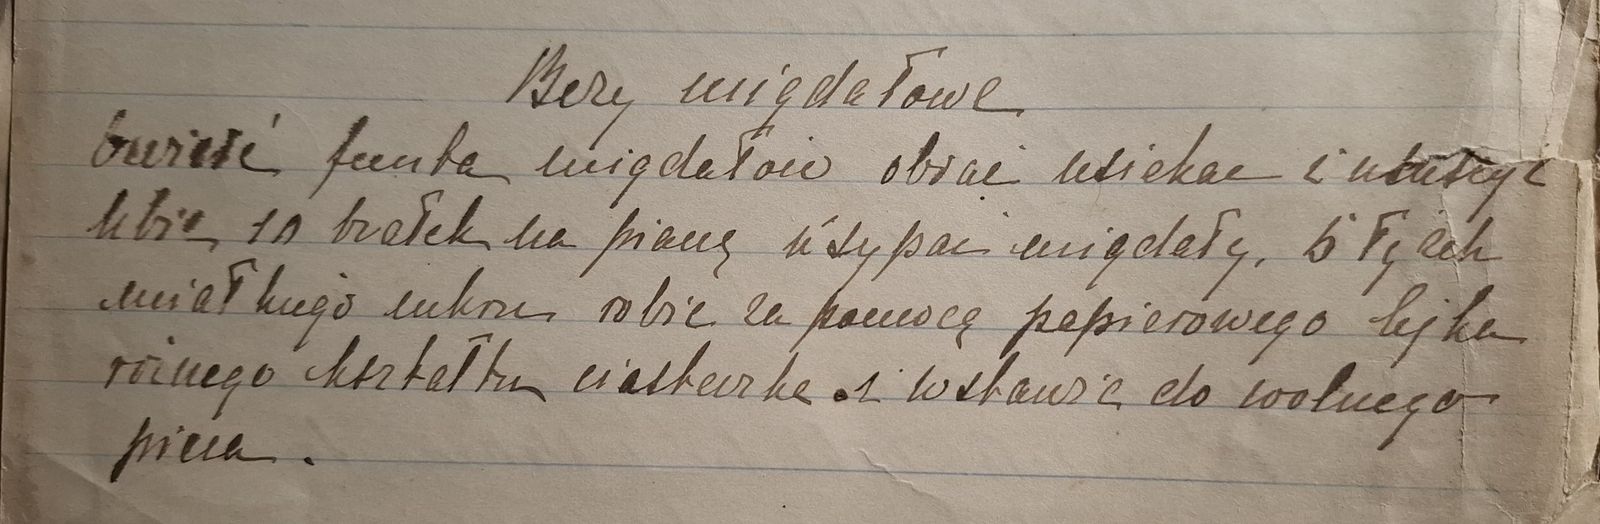 Bezy migdałowe
ćwierć funta migdałów obrać usiekać i ususzyć
ubić 10 białek na pianę wsypać migdały, 5 łyżek
miałkiego cukru robić za pomocą papierowego lejka
różnego kształtu ciasteczka i wstawić do wolnego
pieca.